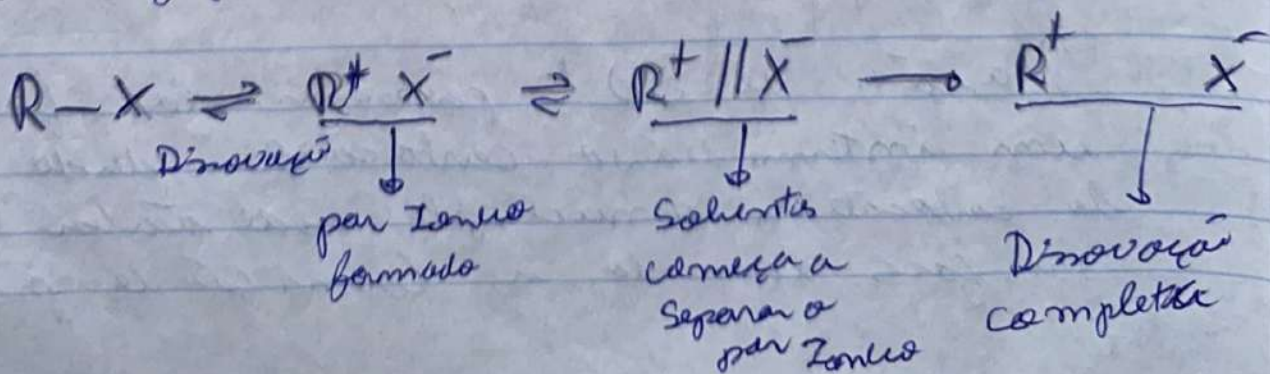 R – X ⇌ R⁺ X⁻ ⇌ R⁺ // X⁻ → R⁺ X⁻
Dissociação
par Iônico
formado
Solvente
começa a
Separar o
par Iônico
Dissociação
completa